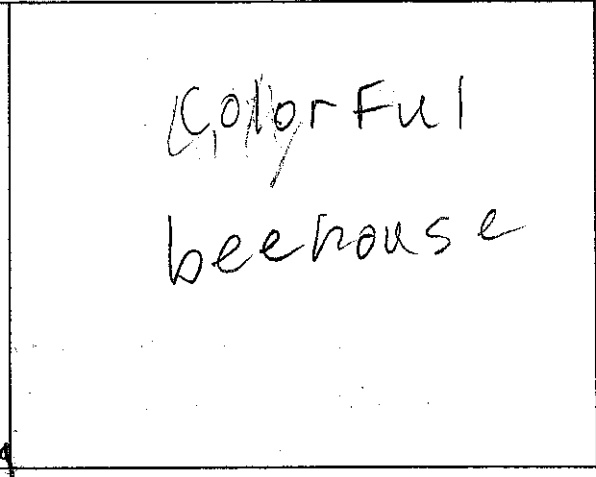 ColorFul
beehouse